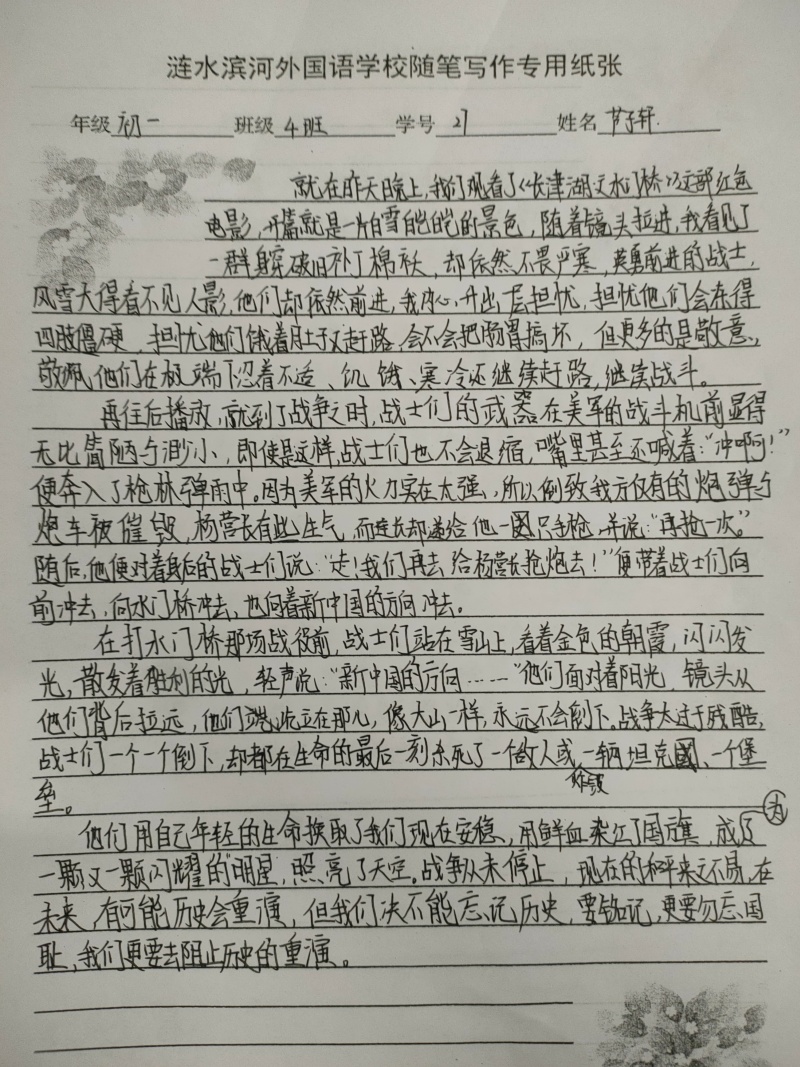 涟水滨河外国语学校随笔写作专用纸张
年级 初一 班级 4班 学号 27 姓名 芦子轩.
就在昨天晚上,我们观看了《长津湖之水门桥》这部红色
电影,开篇就是一片白雪皑皑的景色,随着镜头拉进,我看见了
一群身穿破旧补丁棉袄,却依然不畏严寒,英勇前进的战士,
风雪大得看不见人影,他们却依然前进,我内心升出一层担忧,担忧他们会冻得
四肢僵硬,担忧他们饿着肚子又赶路,会不会把肠胃搞坏,但更多的是敬意,
敬佩他们在极端下忍着不适、饥饿、寒冷还继续赶路,继续战斗。
再往后播放,就到了战争之时,战士们的武器在美军的战斗机前显得
无比简陋与渺小,即使是这样,战士们也不会退缩,嘴里甚至还喊着:“冲啊!”
便奔入了枪林弹雨中。因为美军的火力实在太强,所以倒致我方仅有的炮弹与
炮车被催毁,杨营长有些生气,而连长却递给他一只手枪,并说:“再抢一次。”
随后,他便对着身后的战士们说:“走!我们再去给杨营长抢炮去!”便带着战士们向
前冲去,向水门桥冲去,也向着新中国的方向冲去。
在打水门桥那场战役前,战士们站在雪山上,看着金色的朝霞,闪闪发
光,散发着胜利的光,轻声说:“新中国的方向……”他们面对着阳光,镜头从
他们背后拉远,他们就屹立在那儿,像大山一样,永远不会倒下。战争太过于残酷,
战士们一个一个倒下,却都在生命的最后一刻杀死了一个敌人或炸毁一辆坦克、一个堡
垒。
他们用自己年轻的生命换取了我们现在安稳,用鲜血染红了国旗,成为
一颗又一颗闪耀的明星,照亮了天空。战争从未停止,现在的和平来之不易,在
未来,有可能历史会重演,但我们决不能忘记历史,要铭记,更要勿忘国
耻,我们更要去阻止历史的重演。